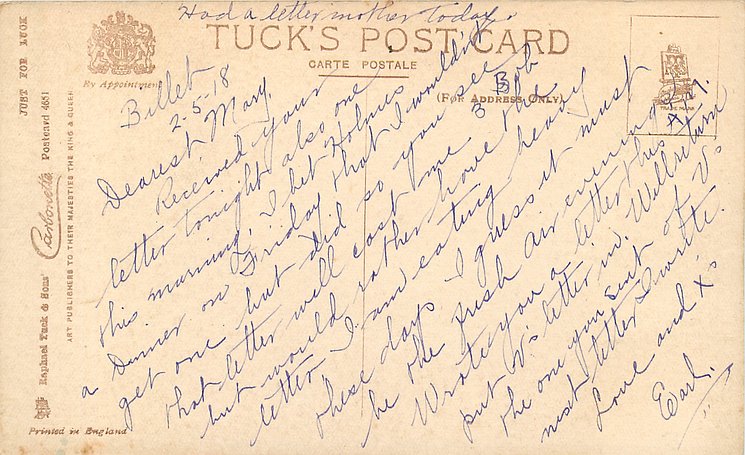 Had a letter mother today.
TUCK'S POST CARD
CARTE POSTALE
(FOR ADDRESS ONLY)
By Appointment
JUST FOR LUCK
Carbonette Postcard 4651
Raphael Tuck & Sons'
ART PUBLISHERS TO THEIR MAJESTIES THE KING & QUEEN
Printed in England
TRADE MARK
Billet
2-5-18
Dearest Mary,
Received your
letter tonight also one
this morning, I bet Holmes
a dinner on Friday that I wouldn't
get one but did so you see
that letter will cost me 3 bob
but would rather have the
letter, I am eating heavy
these days I guess it must
be the fresh air evening
Wrote you a letter this
put V's letter in. Will return
the one you sent of V's
next letter I write.
Love and X's
Earl.